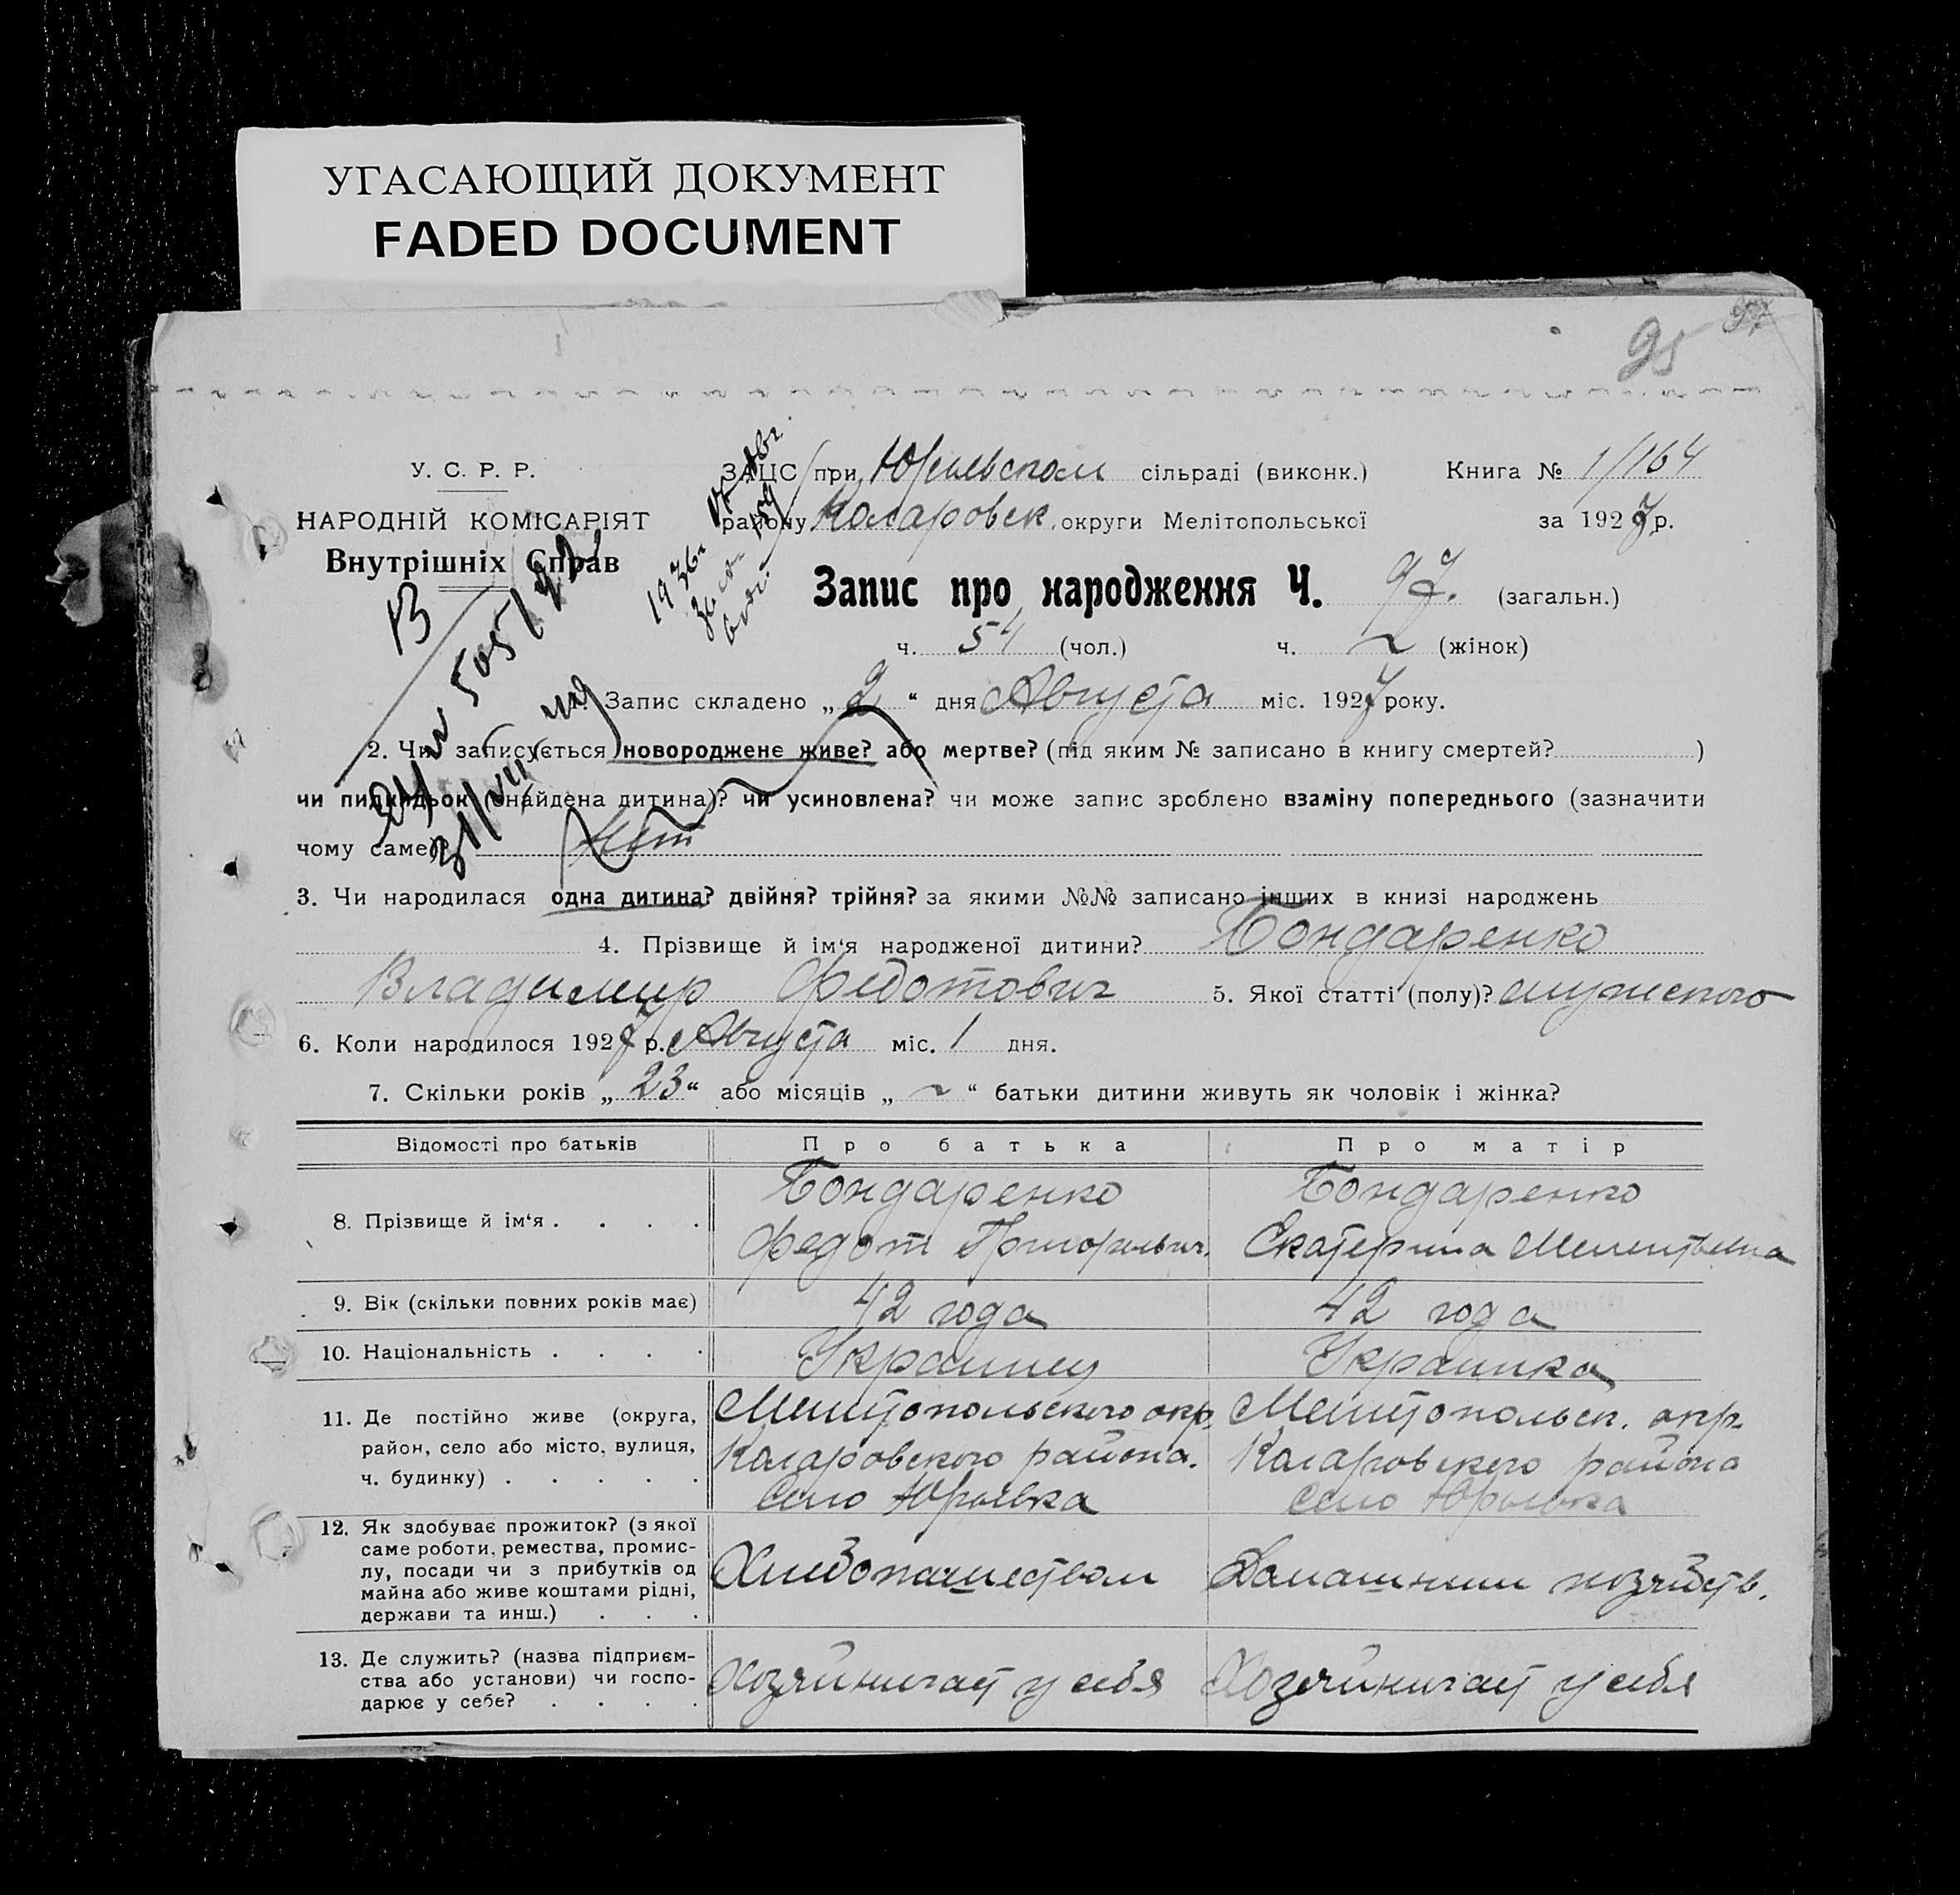 УГАСАЮЩИЙ ДОКУМЕНТ
FADED DOCUMENT
95
97
У. С. Р. Р.
НАРОДНІЙ КОМІСАРІЯТ
Внутрішніх Справ
ЗАЦС при Юрьевском сільраді (виконк.) Книга № 1/164
району Коларовск. округи Мелітопольської за 1927 р.
Запис про народження Ч. 97. (загальн.)
ч. 54 (чол.) ч. (жінок)
1. Запис складено „ 2 “ дня Августа міс. 1927 року.
2. Чи записується новороджене живе? або мертве? (під яким № записано в книгу смертей? )
чи пидкидьок (знайдена дитина)? чи усиновлена? чи може запис зроблено взаміну попереднього (зазначити
чому саме)? Нет
3. Чи народилася одна дитина? двійня? трійня? за якими №№ записано інших в книзі народжень
4. Прізвище й ім‘я народженої дитини? Бондаренко
Владимир Федотович 5. Якої статті (полу)? мужеского
6. Коли народилося 1927 р. Августа міс. 1 дня.
7. Скільки років „ 23 “ або місяців „ “ батьки дитини живуть як чоловік і жінка?
Відомості про батьків Про батька Про матір
8. Прізвище й ім‘я . . . . Бондаренко Бондаренко
Федот Григорьевич. Екатерина
9. Вік (скільки повних років має) 42 года 42 года
10. Національність . . . . Украинец Украинка
11. Де постійно живе (округа, Мелитопольского окр. Мелитопольск. окр.
район, село або місто, вулиця, Коларовского района. Коларовского района
ч. будинку) . . . . . Село Юрьевка Село Юрьевка
12. Як здобуває прожиток? (з якої
саме роботи, ремества, промис-
лу, посади чи з прибутків од Хлебопашеством Домашним хозяйств.
майна або живе коштами рідні,
держави та инш.) . . .
13. Де служить? (назва підприєм-
ства або установи) чи госпо- Хозяйничает у себя Хозяйничает у себя
дарює у себе? . . . .